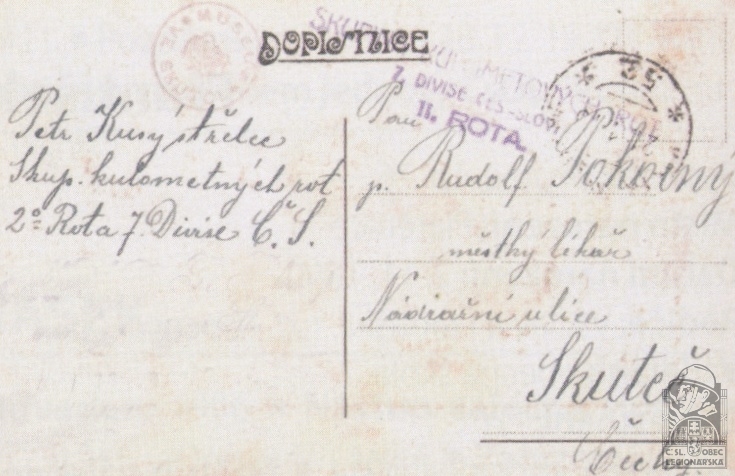 DOPISNICE
MUSEUM VE SKUTČI
SKUPINA KULOMETOVÝCH ROT
7. DIVISE ČES.-SLOV.
II. ROTA.
52
Petr Kusý střelec
Skup. kulometných rot
2º Rota 7. Divise Č. S.
Pan
p. Rudolf Pokorný
městký lékař
Nádražní ulice
Skuteč
Čechy
ČSL. OBEC
LEGIONÁŘSKÁ